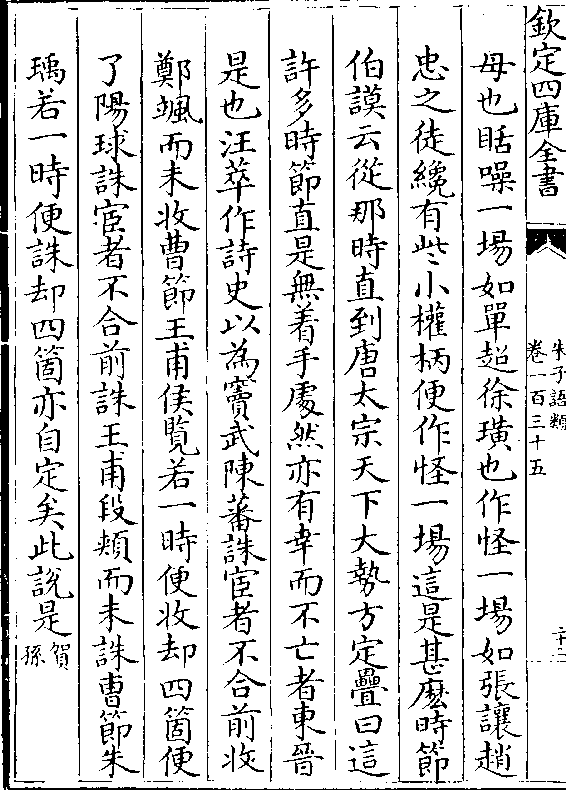 欽定四庫全書
朱子語類
卷一百三十五
母也聒噪一場如單超徐璜也作怪一場如張讓趙
忠之徒纔有些小權柄便作怪一場這是甚麽時節
伯謨云從那時直到唐太宗天下大勢方定疊曰這
許多時節直是無着手處然亦有幸而不亡者東晉
是也汪萃作詩史以為竇武陳蕃誅宦者不合前收
鄭颯而未收曹節王甫侯覧若一時便收却四箇便
了陽球誅宦者不合前誅王甫段熲而未誅曹節朱
瑀若一時便誅却四箇亦自定矣此說是賀
孫